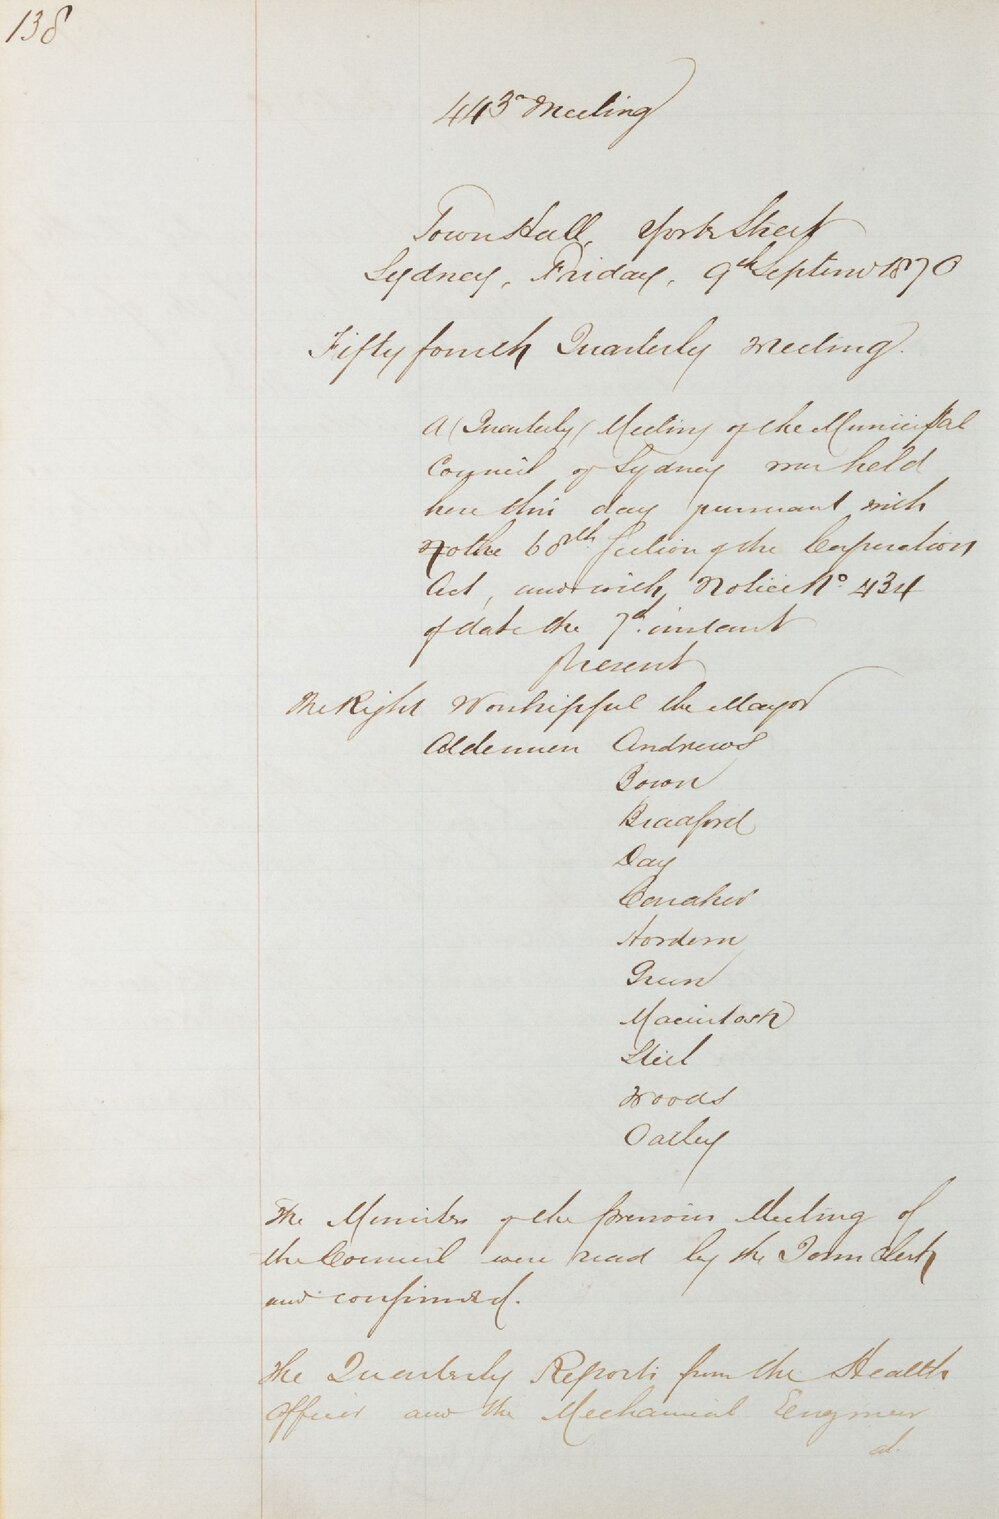 138
443rd Meeting
Town Hall, York Street
Sydney, Friday, 9th Septemr 1870
Fifty fourth Quarterly Meeting.
A (Quarterly) Meeting of the Municipal
Council of Sydney was held
here this day pursuant with
to the 68th Section of the Corporation
Act, and with Notice No 434
of date the 7th instant
Present
The Right Worshipful the Mayor
Aldermen Andrews
Bown
Bradford
Day
Conaher
Hordern
Green
Macintosh
Steel
Woods
Oatley
The Minutes of the previous Meeting of
the Council were read by the Town Clerk
and confirmed.
The Quarterly Reports from the Health
Officer and the Mechanical Engineer